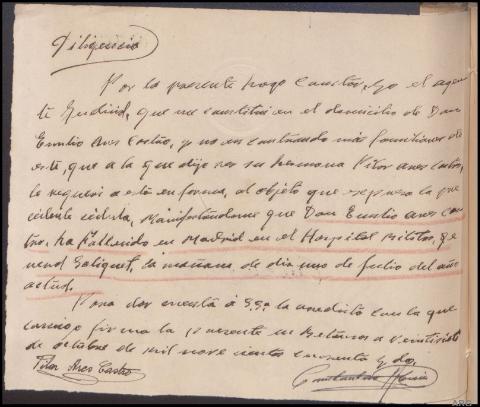 Diligencia
Por la presente hago constar, yo el agen
te Judicial, que me constituí en el domicilio de Don
Emilio Ares Castro, y no encontrando más familiares de
este, que a la que dijo ser su hermana Pilar Ares Castro,
le requerí a esta en forma, al objeto que expresa la pre
cedente cédula, manifestándome que Don Emilio Ares Cas
tro, ha fallecido en Madrid en el Hospital Militar, Ge
neral Goliquet, la mañana de dia uno de Julio del año
actual.
Para dar cuenta á S.Sª la anedicta con la que
conmigo firma la presente en Betanzos a veintisiete
de octubre de mil nove cientos cuarenta y dos.
Pilar Ares Castro